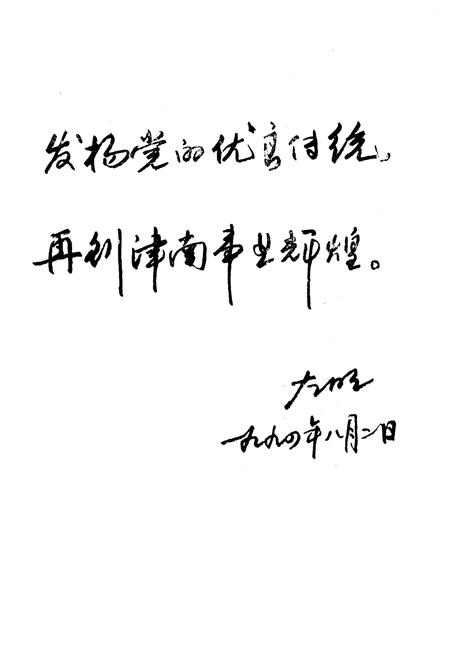 发扬党的优良传统，
再创津南事业辉煌。
一九九四年八月二日